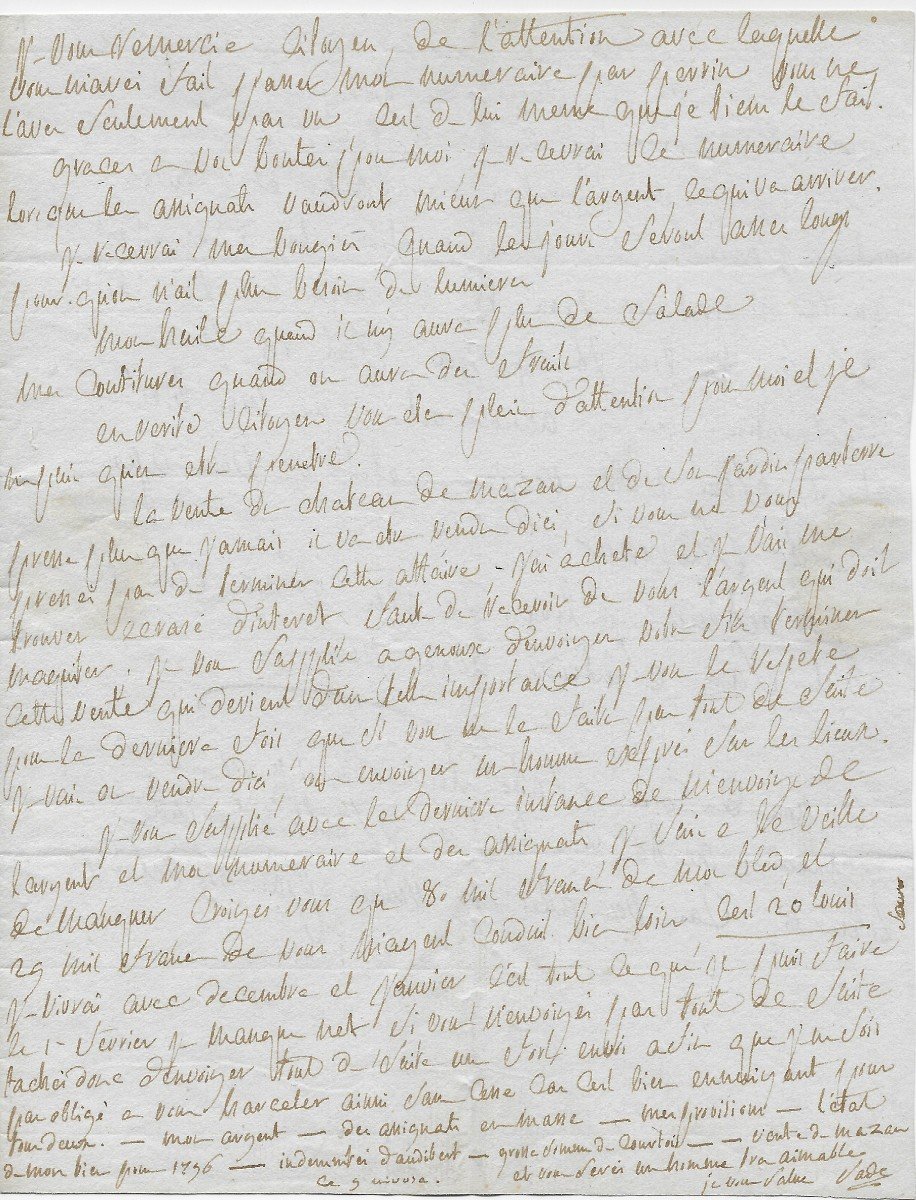 je vous remercie citoyen, de l'attention avec laquelle
vous m'avez fait passer mon numeraire par perrin vous ne
l'avez seulement pas vu c'est de lui meme que je tiens le fait.
graces a vos bontes pour moi je recevrai ce numeraire
lorsque les assignats vaudront mieux que l'argent, ce qui va arriver.
je recevrai mes bougies, quand les jours seront assez longs
pour qu'on n'ait plus besoin de lumieres
mon huile quand il n'y aura plus de salade
mes confitures quand on aura des fruits
en verité citoyen vous etes plein d'attention pour moi et je
ne puis qu'en etre penetré.
la vente du chateau de mazan et de son jardin parterre
presse plus que jamais il va etre vendu d'ici, si vous ne vous
pressez pas de terminer cette affaire. j'ai acheté et je vais me
trouver ecrasé d'interet faute de recevoir de vous l'argent qui doit
m'aquitter. je vous supplie a genoux d'envoyer votre fils terminer
cette vente qui devient d'une telle importance je vous le repete
pour la derniere fois que si vous ne le faites pas tout de suite
je vais ou vendre d'ici, ou envoyer un homme exprés sur les lieux.
je vous supplie avec les derniere instance de m'envoyer de
l'argent et mon numeraire et des assignats je suis a la veille
de manquer croyez vous que 80 mil francs de mon bled, et
29 mil francs de vous m'ayent conduit bien loin c'est 20 louis
je vivrai avec decembre et janvier c'est tout ce que je puis faire
le 1er fevrier je manque net si vous n'envoyez pas tout de suite
tachez donc d'envoyer tout de suite un fort envoi afin que je ne sois
pas obligé a vous harceler ainsi sans cesse car c'est bien ennuyant pour
tous deux. — mon argent — des assignats en masse — mes provisions — l'état
de mon bien pour 1796 — indemnités d'audibert — grosse somme de courtois — — vente de mazan
et vous serez un homme tres aimable
ce 9 nivose. je vous salue Sade